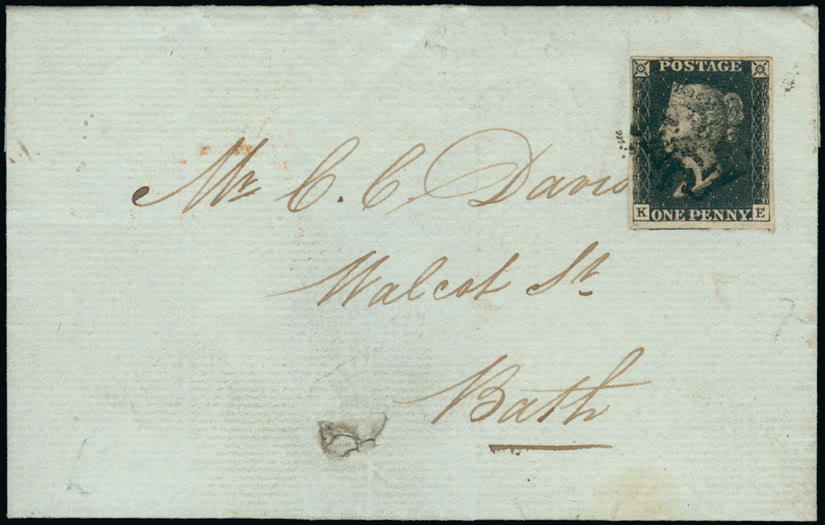 POSTAGE
K ONE PENNY. E
Mr. C. C. Davis
Walcot St.
Bath